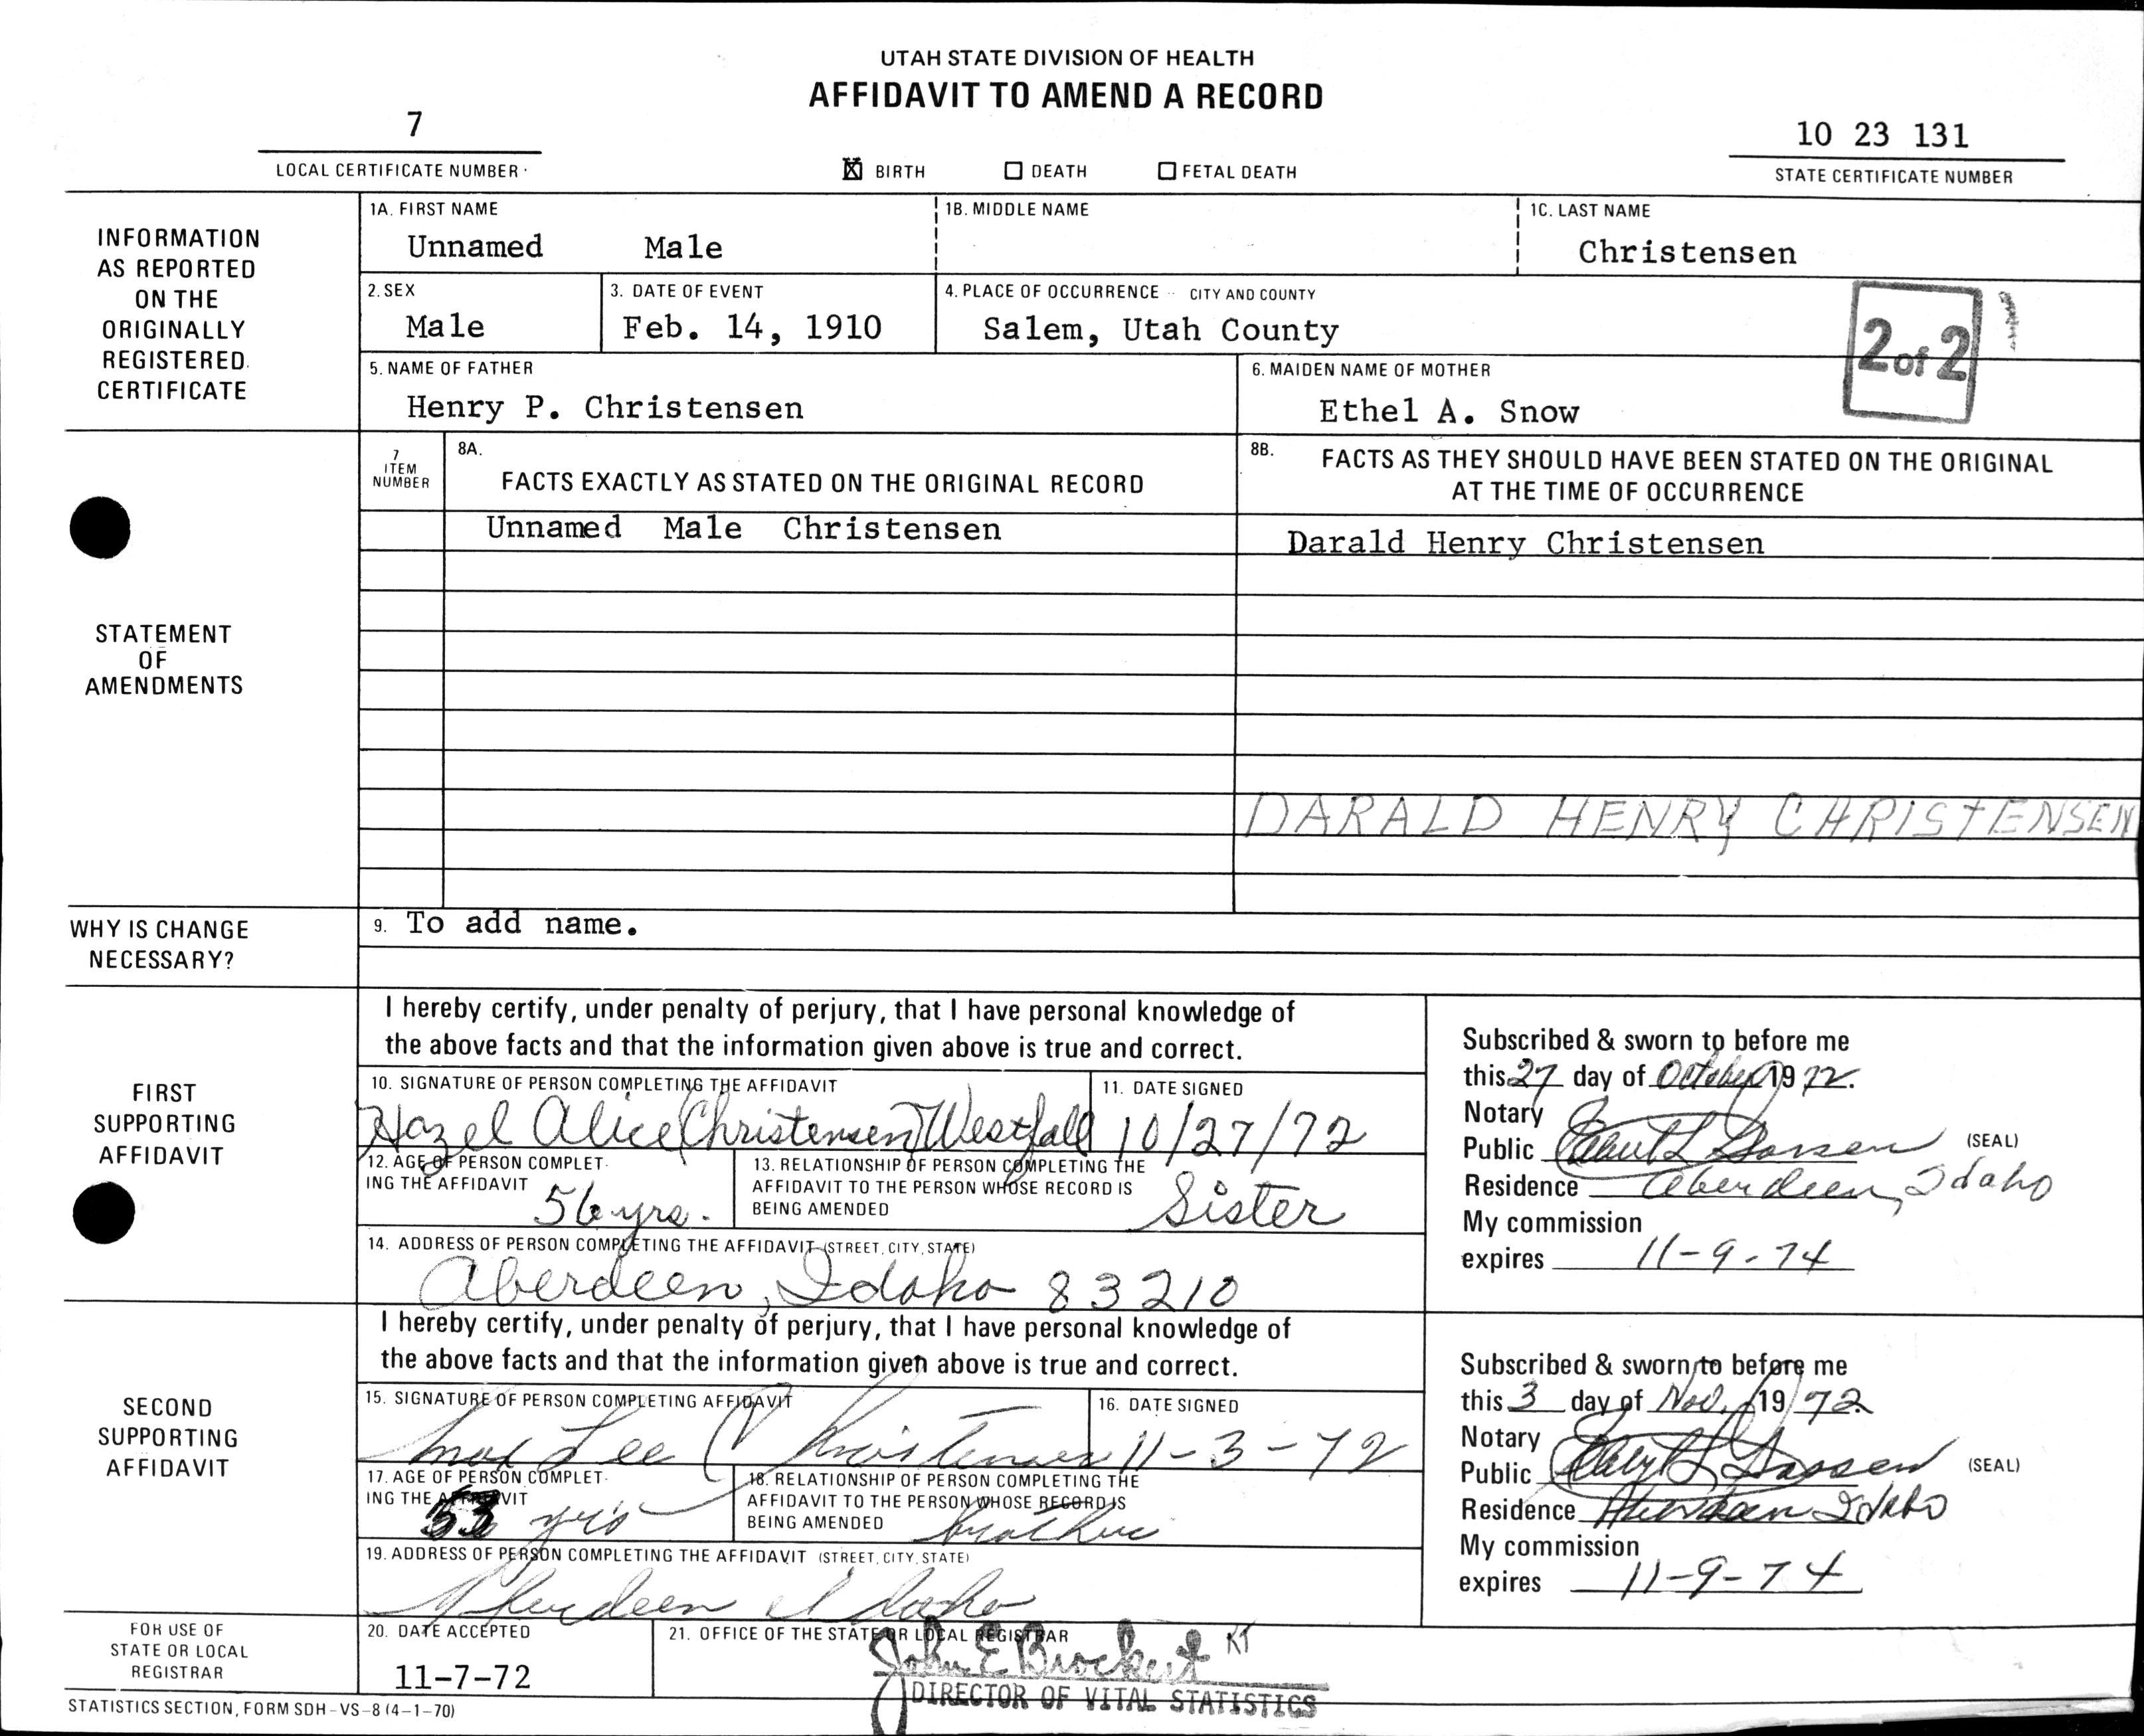 UTAH STATE DIVISION OF HEALTH
AFFIDAVIT TO AMEND A RECORD
7
LOCAL CERTIFICATE NUMBER
☒ BIRTH ☐ DEATH ☐ FETAL DEATH
10 23 131
STATE CERTIFICATE NUMBER
INFORMATION AS REPORTED ON THE ORIGINALLY REGISTERED CERTIFICATE
1A. FIRST NAME 1B. MIDDLE NAME 1C. LAST NAME
Unnamed Male Christensen
2. SEX 3. DATE OF EVENT 4. PLACE OF OCCURRENCE -- CITY AND COUNTY
Male Feb. 14, 1910 Salem, Utah County
2 of 2
5. NAME OF FATHER 6. MAIDEN NAME OF MOTHER
Henry P. Christensen Ethel A. Snow
STATEMENT OF AMENDMENTS
7 ITEM NUMBER
8A. FACTS EXACTLY AS STATED ON THE ORIGINAL RECORD
8B. FACTS AS THEY SHOULD HAVE BEEN STATED ON THE ORIGINAL
AT THE TIME OF OCCURRENCE
Unnamed Male Christensen Darald Henry Christensen
DARALD HENRY CHRISTENSEN
WHY IS CHANGE NECESSARY?
9. To add name.
FIRST SUPPORTING AFFIDAVIT
I hereby certify, under penalty of perjury, that I have personal knowledge of
the above facts and that the information given above is true and correct.
10. SIGNATURE OF PERSON COMPLETING THE AFFIDAVIT 11. DATE SIGNED
Hazel Alice (Christensen) Westfall 10/27/72
12. AGE OF PERSON COMPLETING THE AFFIDAVIT
56 yrs.
13. RELATIONSHIP OF PERSON COMPLETING THE
AFFIDAVIT TO THE PERSON WHOSE RECORD IS
BEING AMENDED
Sister
14. ADDRESS OF PERSON COMPLETING THE AFFIDAVIT (STREET, CITY, STATE)
Aberdeen, Idaho 83210
Subscribed & sworn to before me
this 27 day of October 1972.
Notary
Public (SEAL)
Residence Aberdeen, Idaho
My commission
expires 11-9-74
SECOND SUPPORTING AFFIDAVIT
I hereby certify, under penalty of perjury, that I have personal knowledge of
the above facts and that the information given above is true and correct.
15. SIGNATURE OF PERSON COMPLETING AFFIDAVIT 16. DATE SIGNED
Lee Christensen 11-3-72
17. AGE OF PERSON COMPLETING THE AFFIDAVIT
53 yrs
18. RELATIONSHIP OF PERSON COMPLETING THE
AFFIDAVIT TO THE PERSON WHOSE RECORD IS
BEING AMENDED
brother
19. ADDRESS OF PERSON COMPLETING THE AFFIDAVIT (STREET, CITY, STATE)
Aberdeen Idaho
Subscribed & sworn to before me
this 3 day of Nov. 1972
Notary
Public (SEAL)
Residence Aberdeen Idaho
My commission
expires 11-9-74
FOR USE OF STATE OR LOCAL REGISTRAR
20. DATE ACCEPTED 21. OFFICE OF THE STATE OR LOCAL REGISTRAR
11-7-72 John E Brockert KT
DIRECTOR OF VITAL STATISTICS
STATISTICS SECTION, FORM SDH-VS-8 (4-1-70)